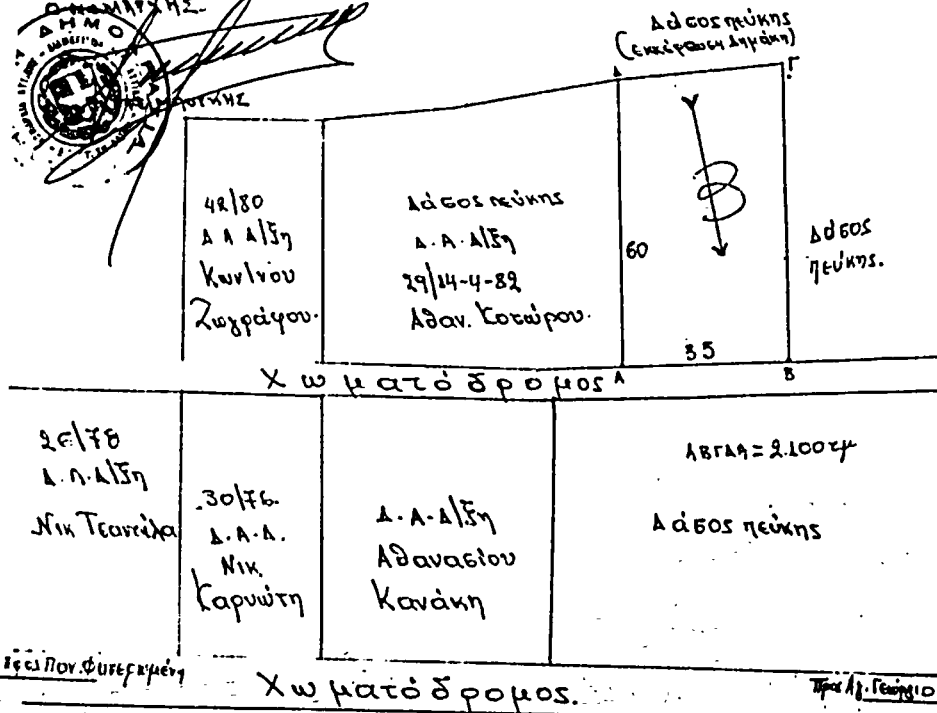 Ο ΝΟΜΑΡΧΗΣ
Δάσος πεύκης
Δ
Γ
42/80
Δ Α Δ/ξη
Κων/νου
Ζωγράφου.
Δάσος πεύκης
Δ.Α.Δ/ξη
29/14-4-82
Αθαν. Κοτώρου.
60
35
Β
Δάσος
πεύκης.
Χωματόδρομος
Α
Β
26/78
Δ.Α.Δ/ξη
Νικ Τσαντίλα
30/76.
Δ.Α.Δ.
Νικ.
Καρυώτη
Δ.Α.Δ/ξη
Αθανασίου
Κανάκη
ΑΒΓΔΑ = 2.100 τμ
Δάσος πεύκης
Χωματόδρομος.
Προς Αγ. Γεώργιο